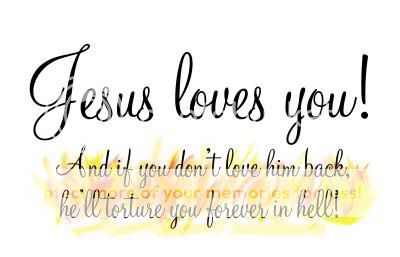 Jesus loves you!
And if you don't love him back,
protect more of your memories for less!
he'll torture you forever in hell!